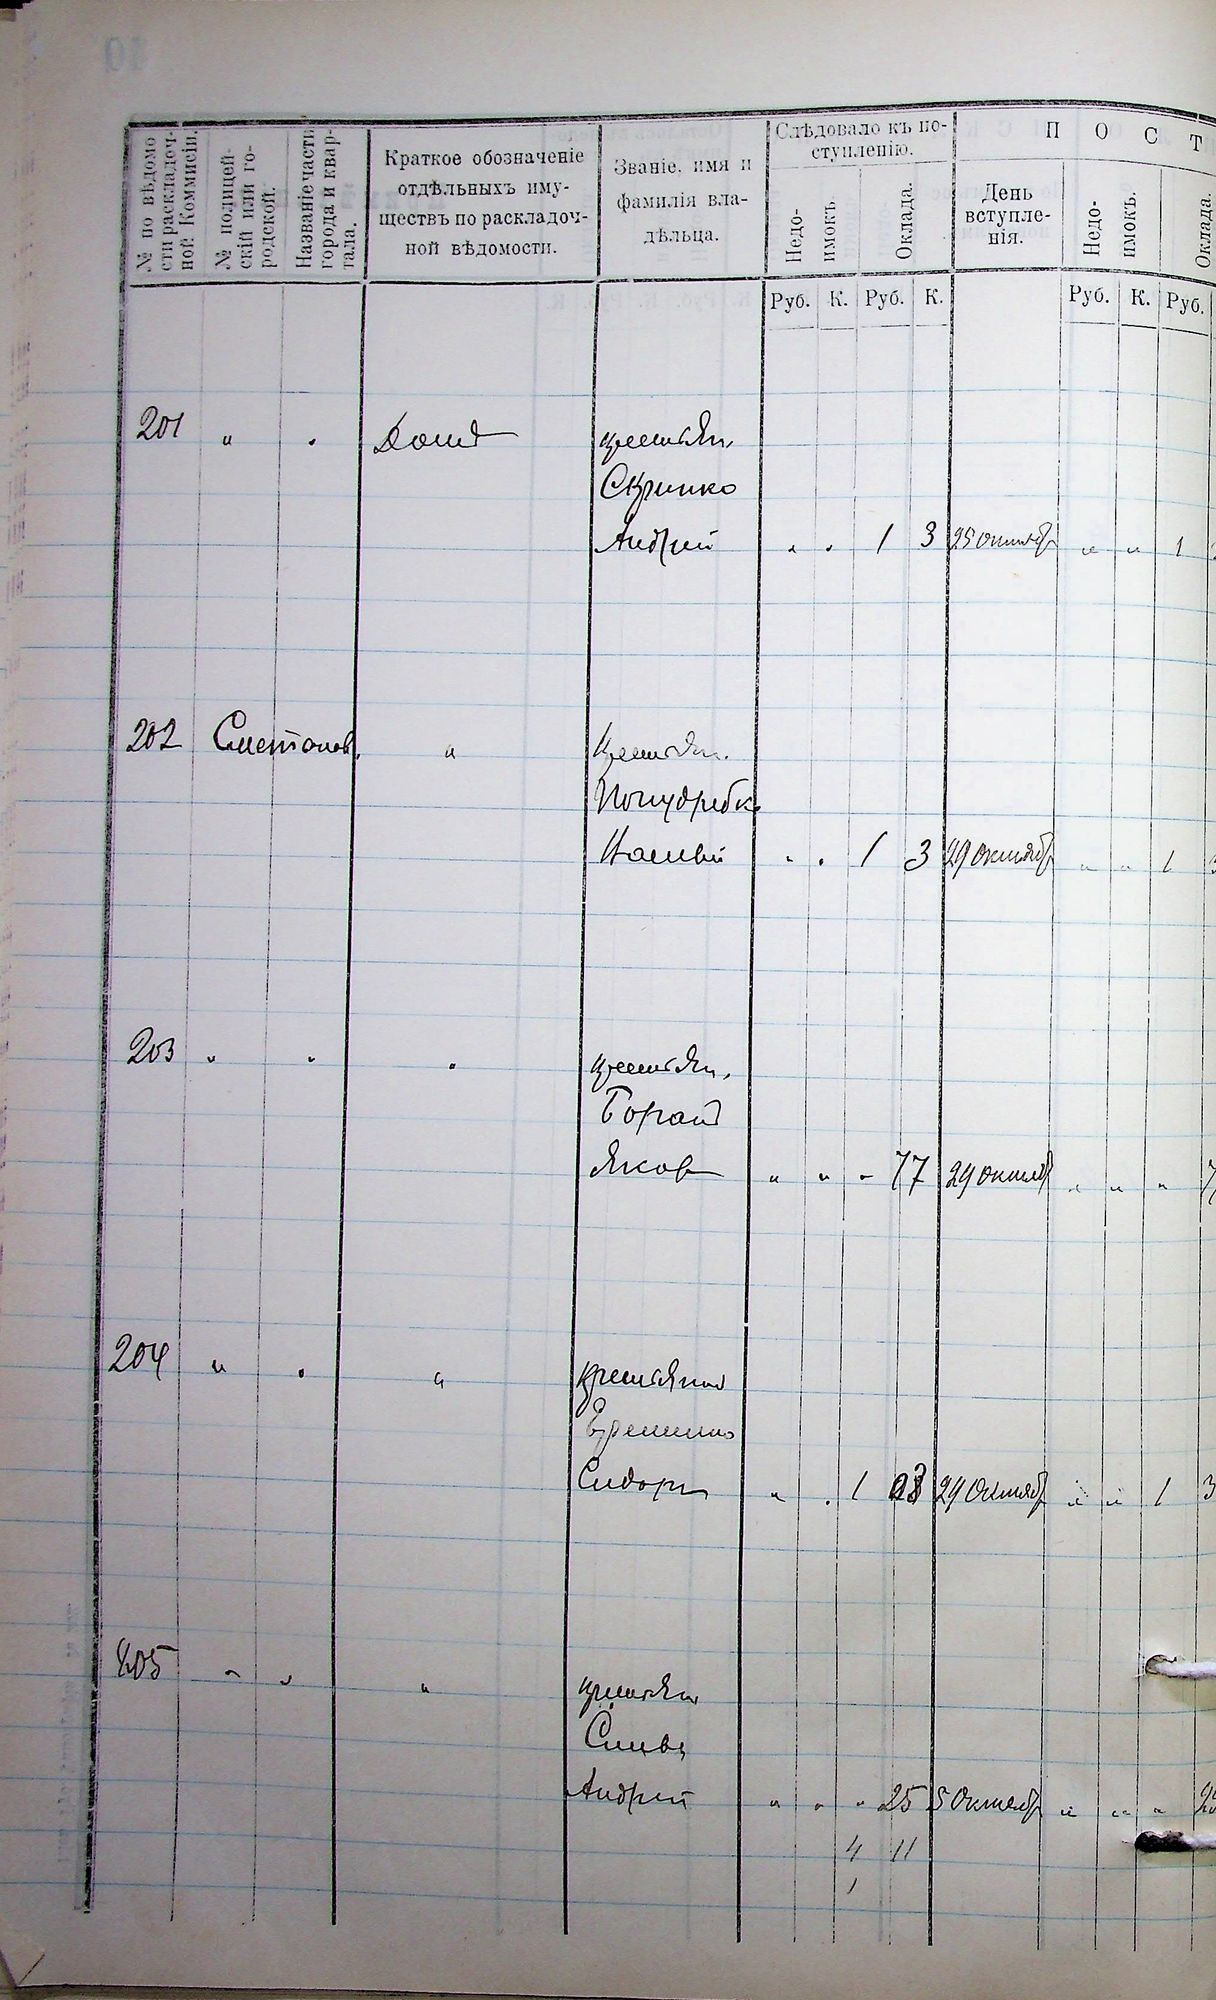 № по вѣдомо
сти раскладоч-
ной Коммисіи.
№ полицей-
скій или го-
родской.
Названіе части
города и квар-
тала.
Краткое обозначеніе
отдѣльныхъ иму-
ществъ по раскладоч-
ной вѣдомости.
Званіе, имя и
фамилія вла-
дѣльца.
Слѣдовало къ по-
ступленію.
Недо-
имокъ.
Оклада.
П О С Т
День
вступле-
нія.
Недо-
имокъ.
Оклада.
Руб. К. Руб. К. Руб. К. Руб.
201 " " Домъ крестьян.
Скрипко
Андрей " " 1 3 25 октябр " " 1
202 Сметанов. " крестьян.
" " 1 3 29 октябр " " 1 3
203 " " " крестьян.
Яков " " " 77 29 октябр " " " 7
204 " " "
Сидор " " 1 03 29 октябр " " 1 3
205 " " " крестьян
Андрей " " " 25 5 Октябр " " " 2
4 11